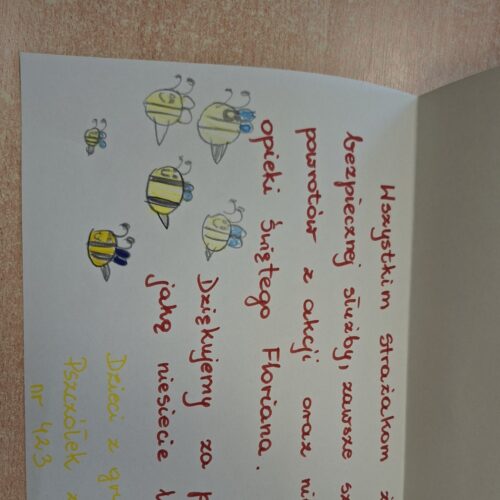 Wszystkim Strażakom
bezpiecznej służby, zawsze
powrotów z akcji oraz
opieki Świętego Floriana.
Dziękujemy za
jaką niesiecie
Dzieci z
Pszczółek z
nr 423